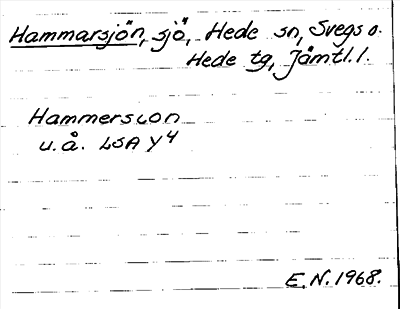 Hammarsjön, sjö, Hede sn, Svegs o.
Hede tg, Jämtl. l.
Hammerscon
u. å. LSA Y4
E. N. 1968.